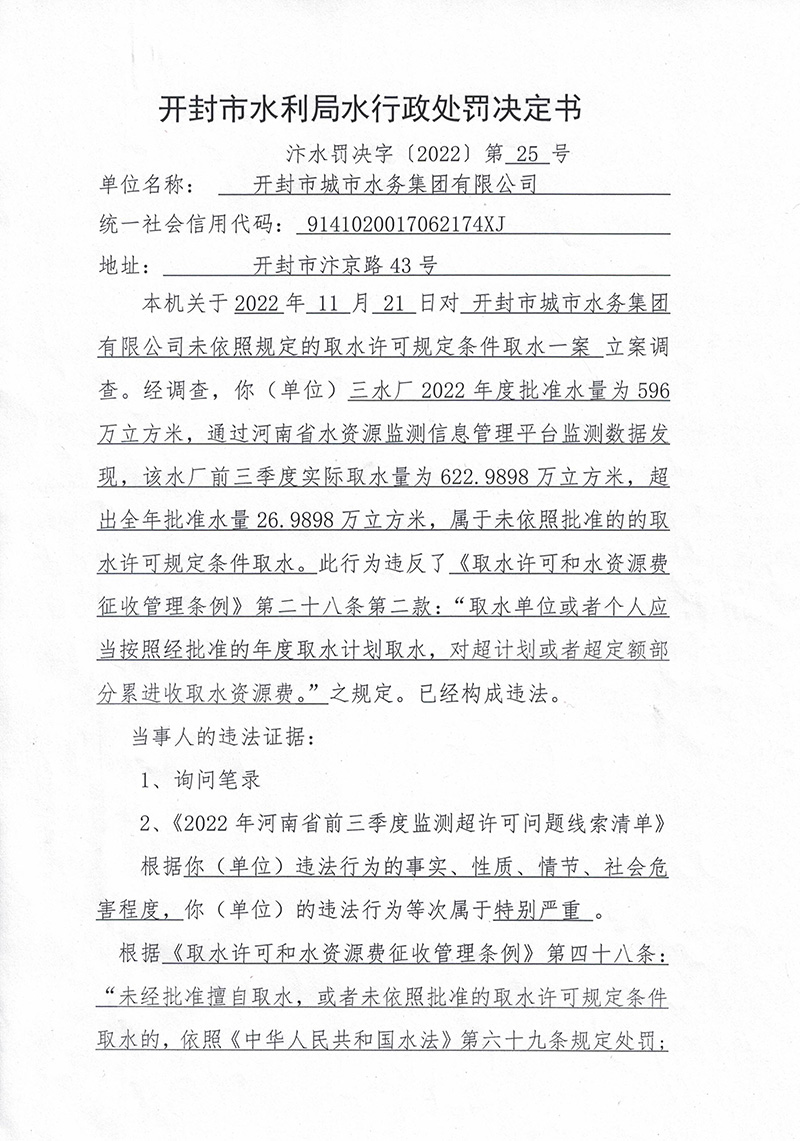 开封市水利局水行政处罚决定书
汴水罚决字〔2022〕第 25 号
单位名称： 开封市城市水务集团有限公司
统一社会信用代码： 9141020017062174XJ
地址： 开封市汴京路 43 号
本机关于 2022 年 11 月 21 日对 开封市城市水务集团
有限公司未依照规定的取水许可规定条件取水一案 立案调
查。经调查，你（单位）三水厂 2022 年度批准水量为 596
万立方米，通过河南省水资源监测信息管理平台监测数据发
现，该水厂前三季度实际取水量为 622.9898 万立方米，超
出全年批准水量 26.9898 万立方米，属于未依照批准的的取
水许可规定条件取水。此行为违反了《取水许可和水资源费
征收管理条例》第二十八条第二款：“取水单位或者个人应
当按照经批准的年度取水计划取水，对超计划或者超定额部
分累进收取水资源费。”之规定。已经构成违法。
当事人的违法证据：
1、询问笔录
2、《2022 年河南省前三季度监测超许可问题线索清单》
根据你（单位）违法行为的事实、性质、情节、社会危
害程度，你（单位）的违法行为等次属于特别严重 。
根据《取水许可和水资源费征收管理条例》第四十八条：
“未经批准擅自取水，或者未依照批准的取水许可规定条件
取水的，依照《中华人民共和国水法》第六十九条规定处罚；